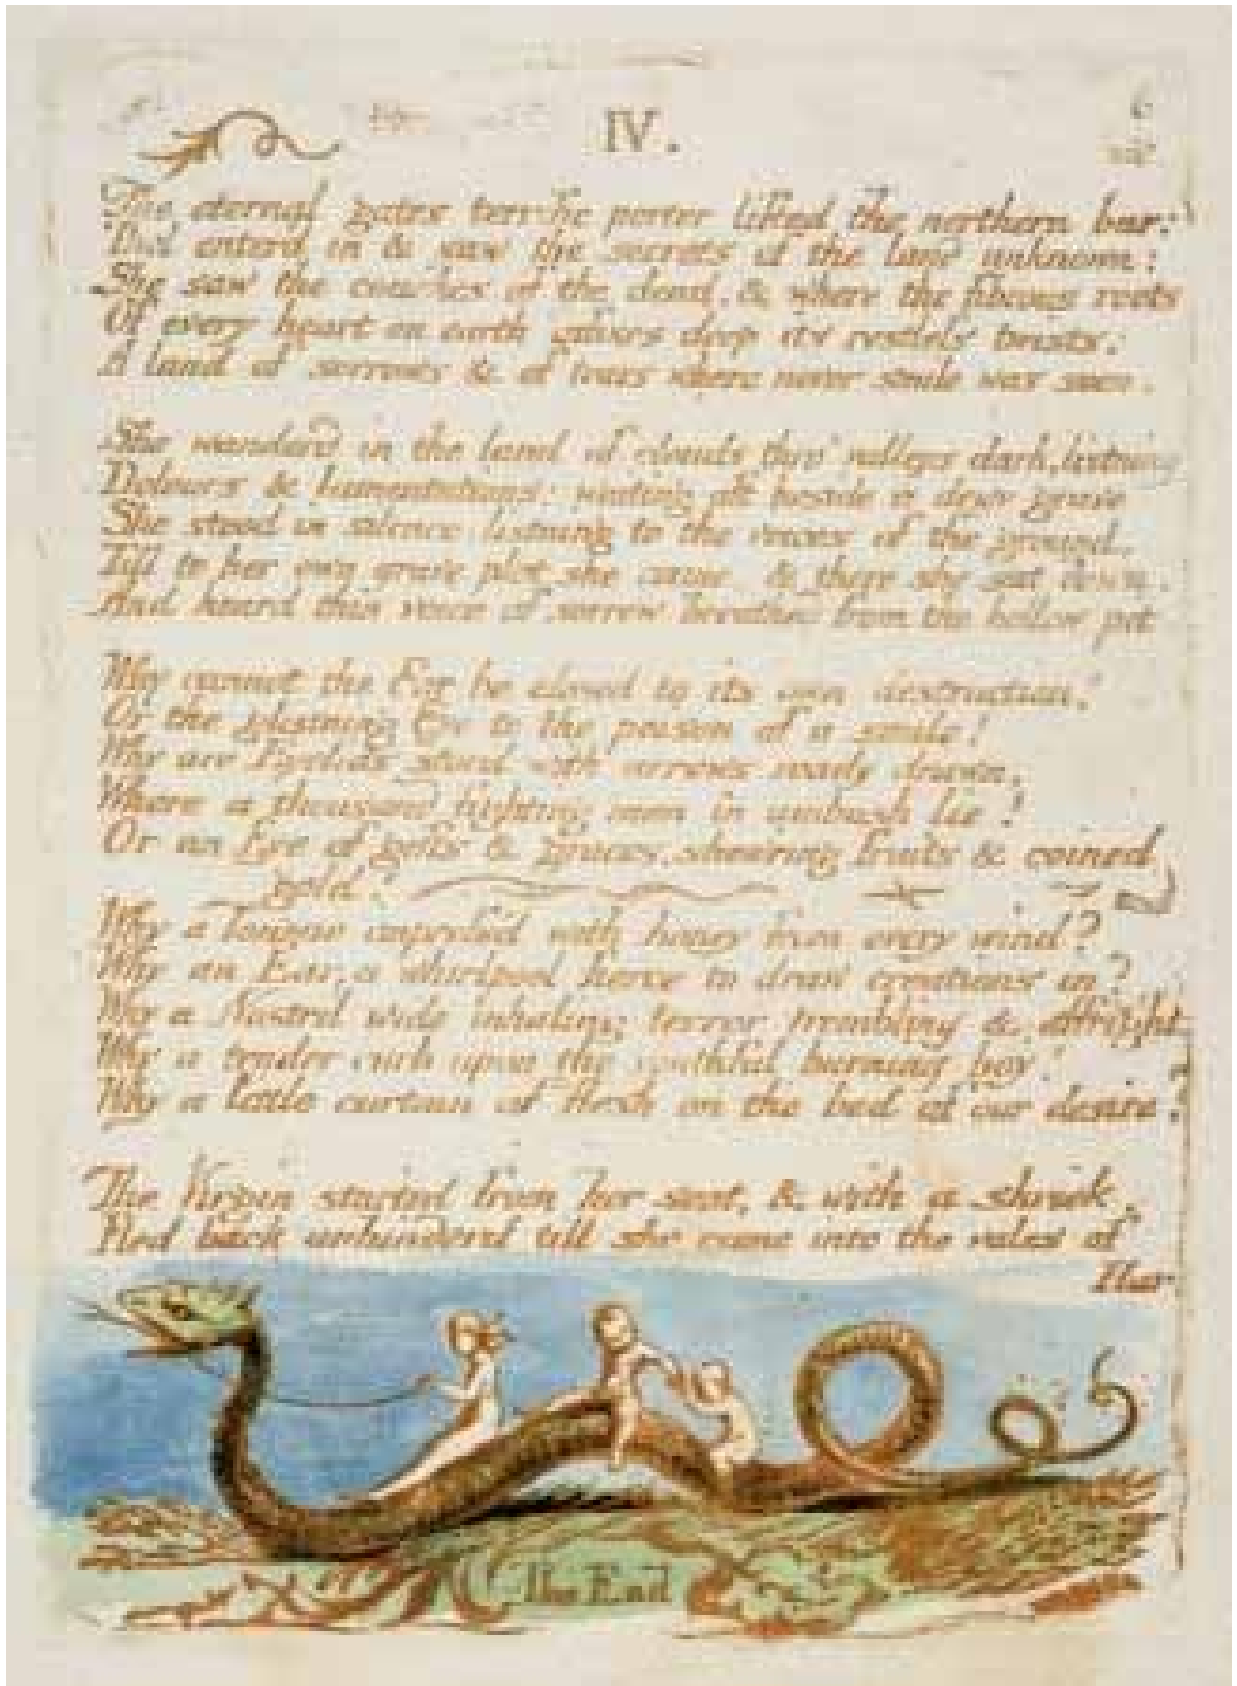 IV.
The eternal gates terrific porter lifted the northern bar:
Thel enterd in & saw the secrets of the land unknown:
She saw the couches of the dead, & where the fibrous roots
Of every heart on earth infixes deep its restless twists:
A land of sorrows & of tears where never smile was seen.
She wanderd in the land of clouds thro' valleys dark, listning
Dolours & lamentations: waiting oft beside a dewy grave
She stood in silence listning to the voices of the ground,
Till to her own grave plot she came, & there she sat down.
And heard this voice of sorrow breathed from the hollow pit
Why cannot the Ear be closed to its own destruction?
Or the glistning Eye to the poison of a smile!
Why are Eyelids stord with arrows ready drawn,
Where a thousand fighting men in ambush lie!
Or an Eye of gifts & graces, showring fruits & coined
gold!
Why a Tongue impress'd with honey from every wind?
Why an Ear, a whirlpool fierce to draw creations in?
Why a Nostril wide inhaling terror trembling & affright
Why a tender curb upon the youthful burning boy!
Why a little curtain of flesh on the bed of our desire?
The Virgin started from her seat, & with a shriek,
Fled back unhinderd till she came into the vales of
Har
The End